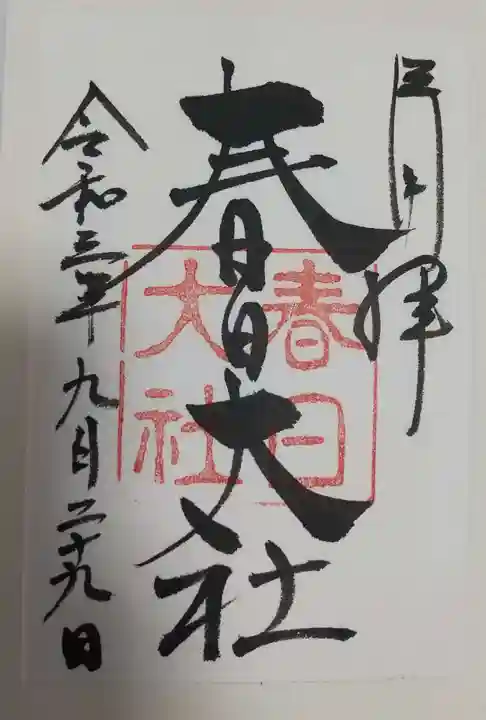 奉拝
春日大社
春日
大社
令和三年九月二十九日